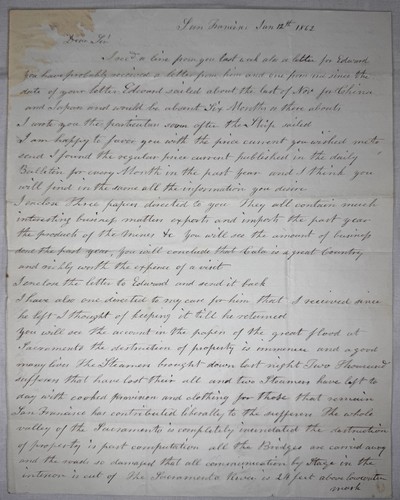 San Francisco Jan 12th 1862
Dear Sir
I recd a line from you last week also a letter for Edward
You have probably received a letter from him and one from me since the
date of your letter. Edward sailed about the last of Nov for China
and Japan and would be absent Six Months or there abouts
I wrote you the particulars soon after the Ship sailed
I am happy to favor you with the price current you wished me to
send I found the regular price current published in the daily
Bulletin for every Month in the past year and I think you
will find in the same all the information you desire
I inclose three papers directed to you They all contain much
interesting business matters exports and imports the past year
the products of the mines &c You will see the amount of business
done the past year, You will conclude that Cala is a great Country
and richly worth the expense of a visit
I enclose the letter to Edward and send it back
I have also one directed to my care for him that I received since
he left I thought of keeping it till he returned
You will see the account in the papers of the great flood at
Sacramento the destruction of property is immense and a good
many lives The Steamers brought down last night Two Thousand
sufferers that have lost their all and two Steamers have left to
day with cooked provision and clothing for those that remain
San Francisco has contributed liberally to the sufferers The whole
valley of the Sacramento is completely inundated the destruction
of property is past computation all the Bridges are carried away
and the roads so damaged that all communication by Stage in the
interior is cut off The Sacramento River is 24 feet above low water
mark